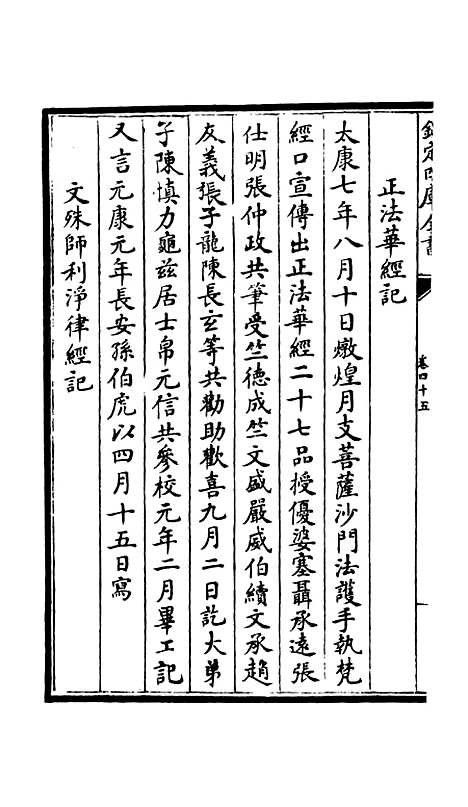 欽定四庫全書
卷四十五
正法華經記
太康七年八月十日燉煌月支菩薩沙門法護手執梵
經口宣傳出正法華經二十七品授優婆塞聶承遠張
仕明張仲政共筆受竺德成竺文盛嚴威伯續文承趙
友義張子龍陳長玄等共勸助歡喜九月二日訖大弟
子陳慎力龜兹居士帛元信共參校元年二月畢工記
又言元康元年長安孫伯虎以四月十五日寫
文殊師利淨律經記